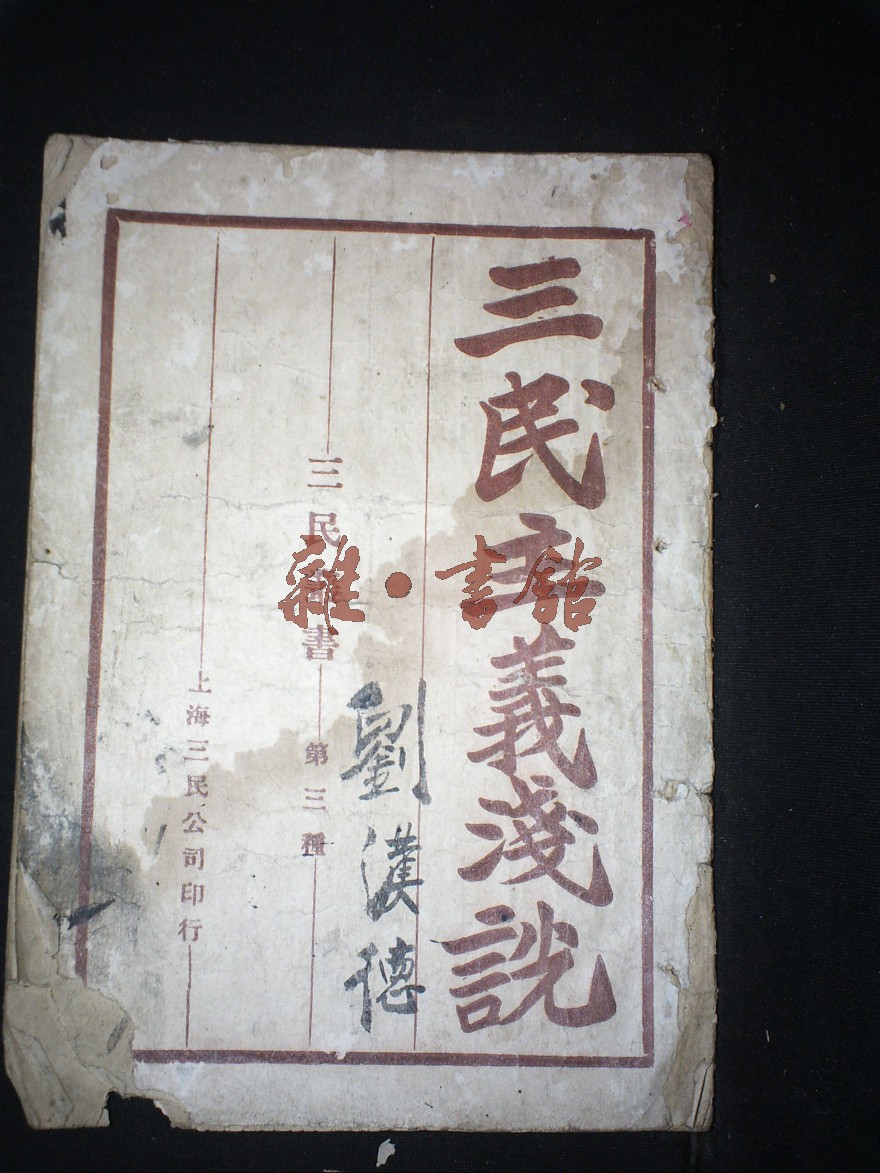 三民主義淺說
劉漢德
三民叢書
第三種
上海三民公司印行
雜·書館